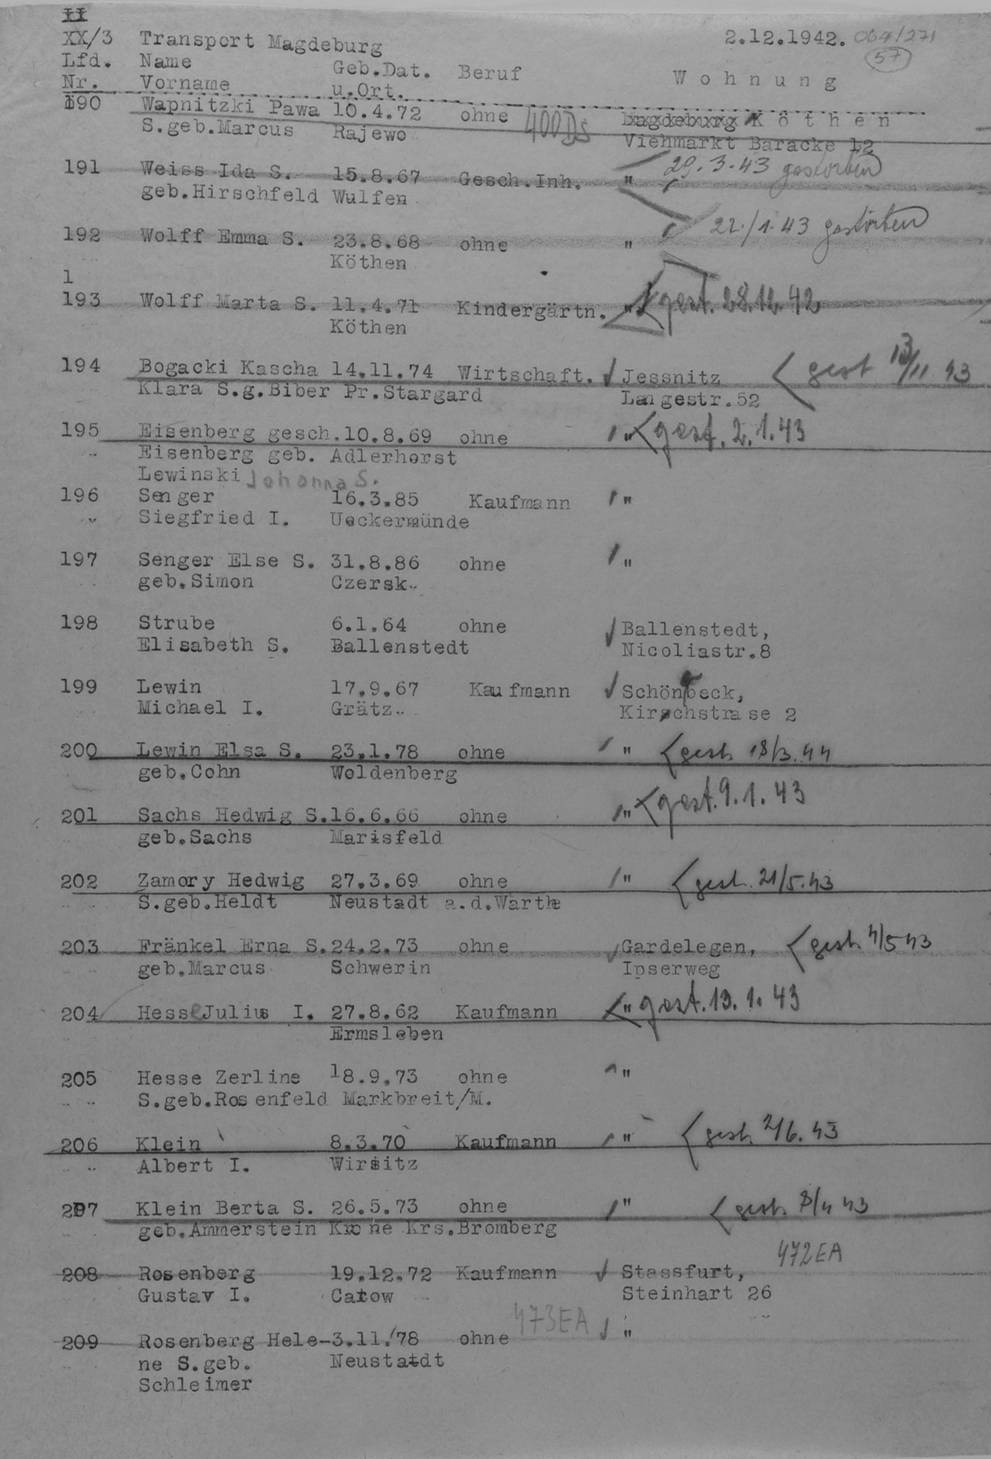 II
XX/3 Transport Magdeburg 2.12.1942. 064/271
57
Lfd. Name Geb.Dat. Beruf Wohnung
Nr. Vorname u.Ort.
190 Wapnitzki Pawa 10.4.72 ohne 400Ds Magdeburg Köthen
S.geb.Marcus Rajewo Viehmarkt Baracke 12
191 Weiss Ida S. 15.8.67 Gesch.Inh. " 29.3.43 gestorben
geb.Hirschfeld Wulfen
192 Wolff Emma S. 23.8.68 ohne " 22./1.43 gestorben
Köthen
1
193 Wolff Marta S. 11.4.71 Kindergärtn. " gest. 28.12.42
Köthen
194 Bogacki Kascha 14.11.74 Wirtschaft. Jessnitz gest 13/11 43
Klara S.g.Biber Pr.Stargard Langestr.52
195 Eisenberg gesch. 10.8.69 ohne " gest. 2.1.43
" Eisenberg geb. Adlerhorst
Lewinski Johanna S.
196 Senger 16.3.85 Kaufmann "
" Siegfried I. Ueckermünde
197 Senger Else S. 31.8.86 ohne "
geb.Simon Czersk
198 Strube 6.1.64 ohne Ballenstedt,
Elisabeth S. Ballenstedt Nicoliastr.8
199 Lewin 17.9.67 Kaufmann Schönbeck,
Michael I. Grätz Kirschstrase 2
200 Lewin Elsa S. 23.1.78 ohne " gest. 18/3.44
geb.Cohn Woldenberg
201 Sachs Hedwig S. 16.6.66 ohne " gest. 9.1.43
geb.Sachs Marisfeld
202 Zamory Hedwig 27.3.69 ohne " gest. 21/5.43
S.geb.Heldt Neustadt a.d.Warthe
203 Fränkel Erna S. 24.2.73 ohne Gardelegen, gest. 4/5 43
geb.Marcus Schwerin Ipserweg
204 Hesse Julius I. 27.8.62 Kaufmann " gest. 19.1.43
Ermsleben
205 Hesse Zerline 18.9.73 ohne "
S.geb.Rosenfeld Markbreit/M.
206 Klein 8.3.70 Kaufmann " gest. 2/6.43
Albert I. Wirsitz
207 Klein Berta S. 26.5.73 ohne " gest. 8/4 43
geb.Ammerstein Krone Krs.Bromberg
472EA
208 Rosenberg 19.12.72 Kaufmann Stassfurt,
Gustav I. Catow Steinhart 26
473EA
209 Rosenberg Hele- 3.11.78 ohne "
ne S.geb. Neustatdt
Schleimer